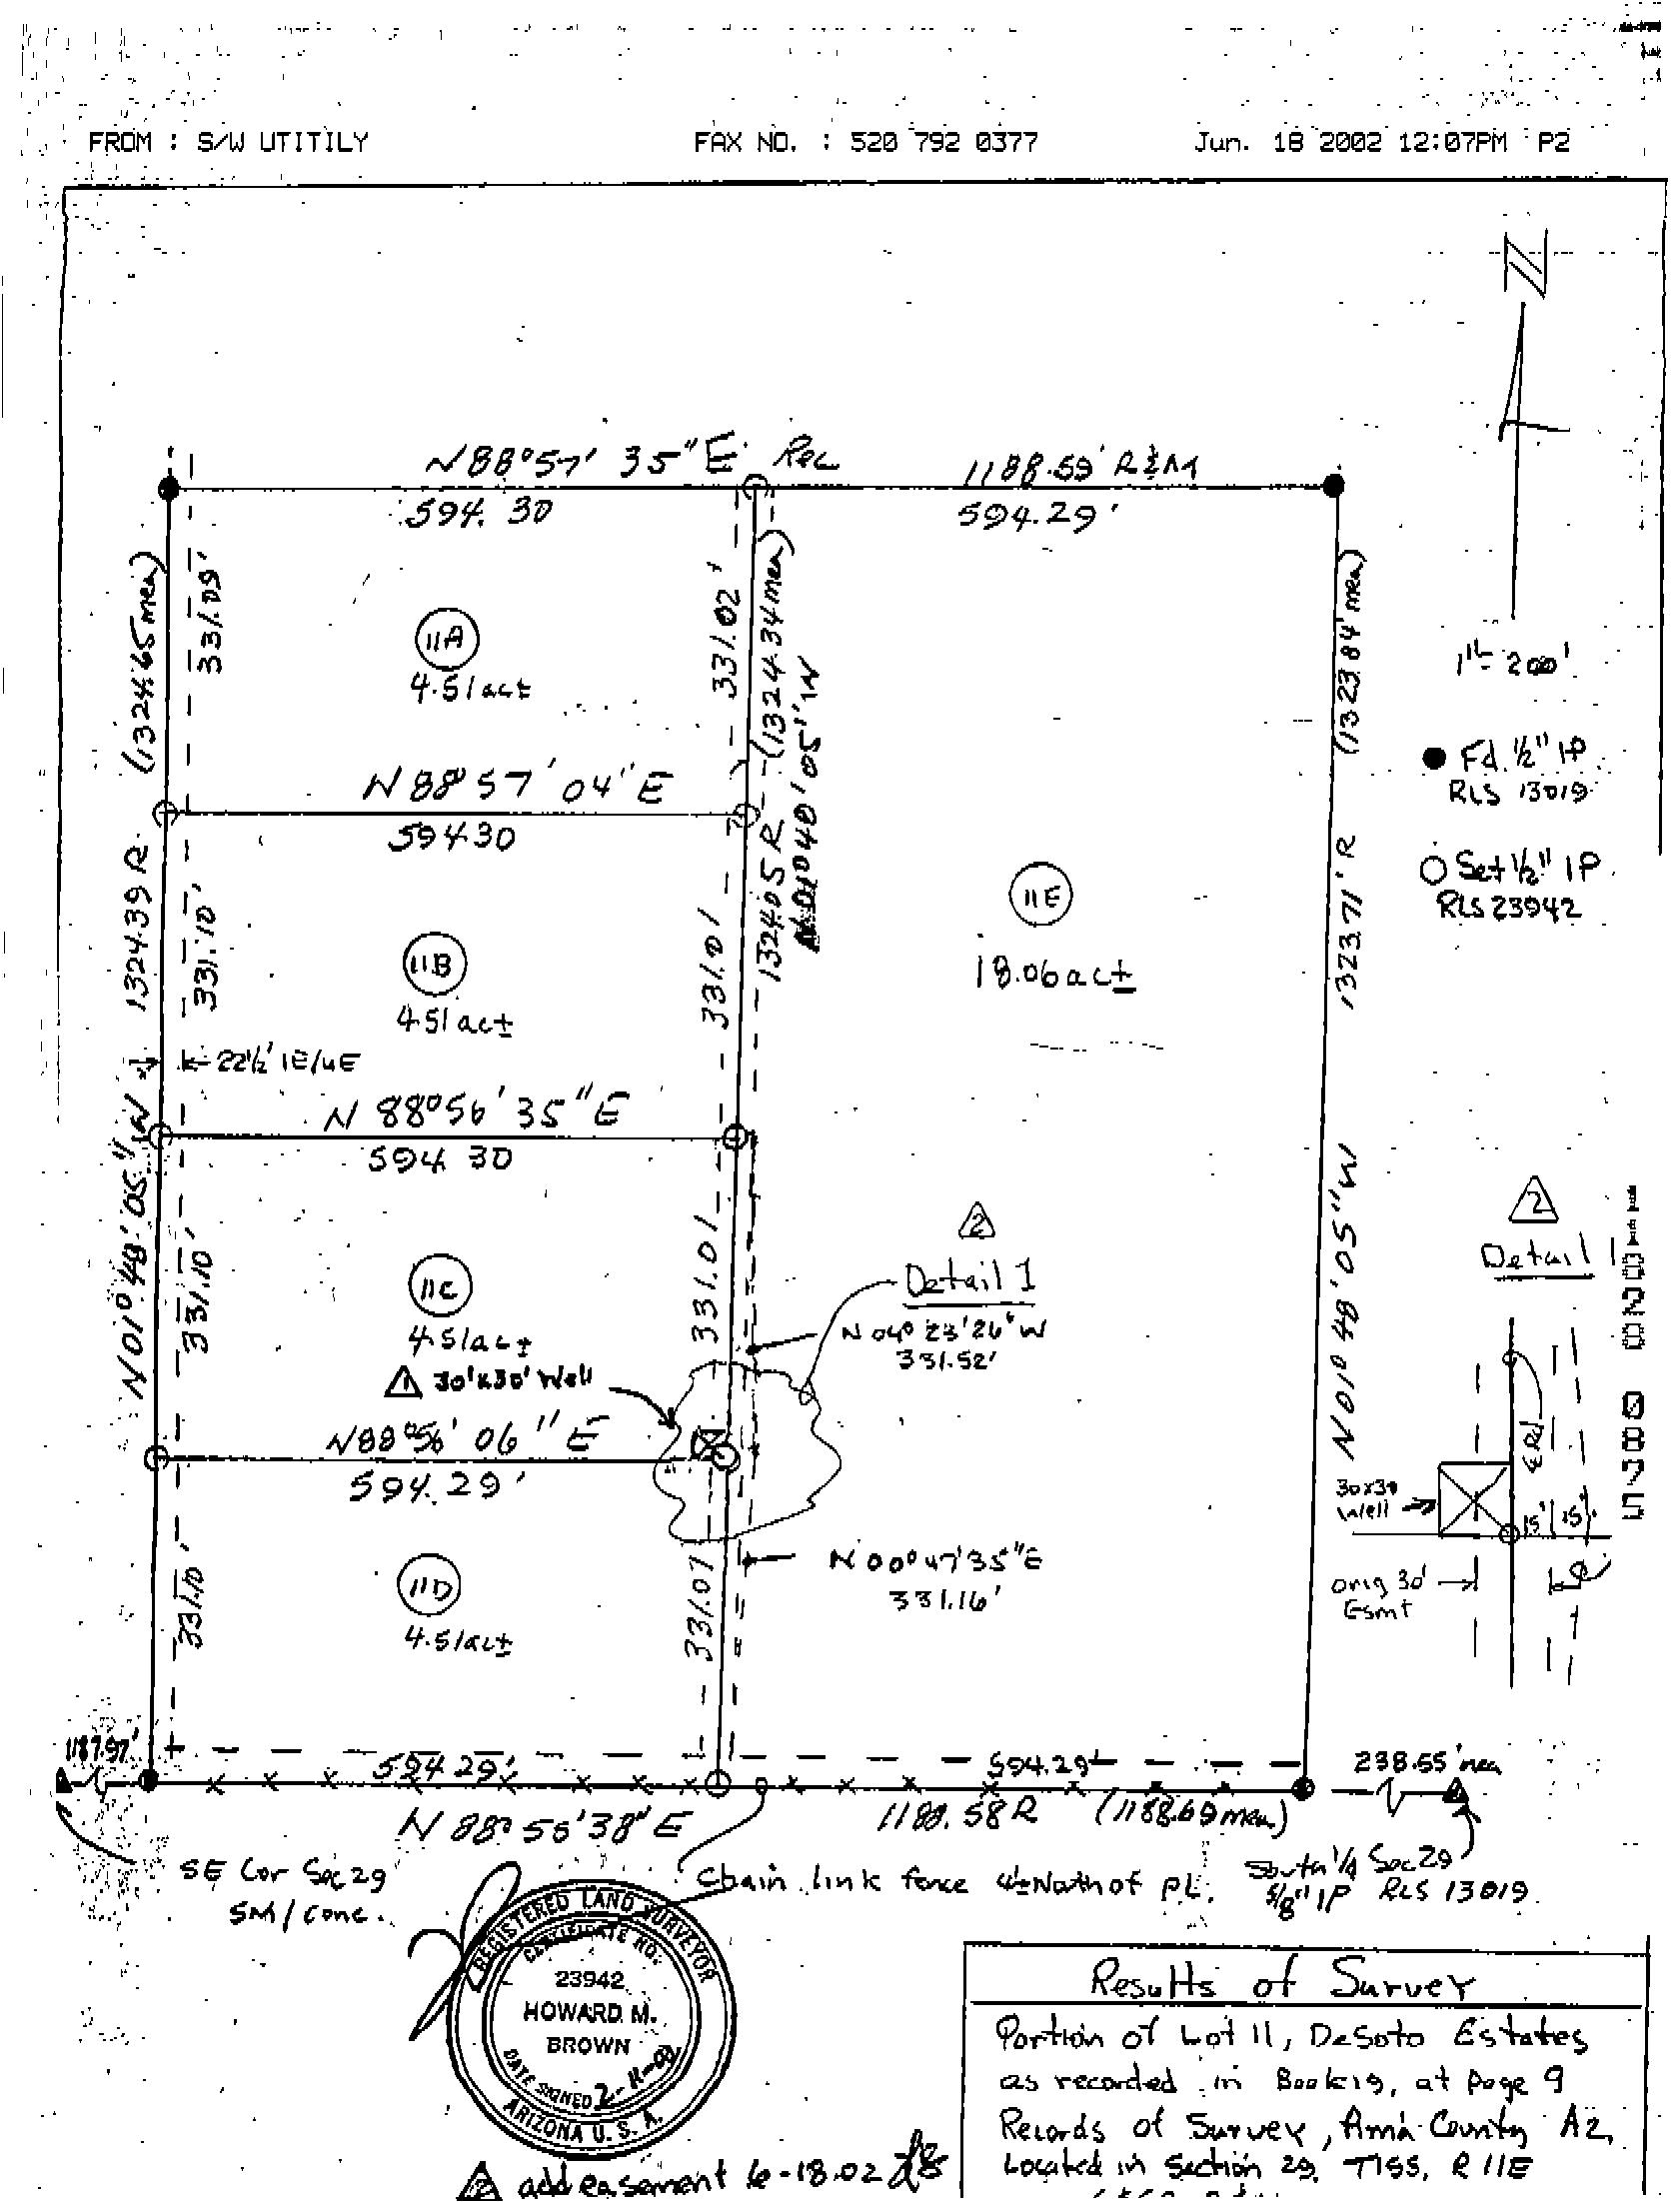 FROM : S/W UTITILY FAX NO. : 520 792 0377 Jun. 18 2002 12:07PM P2
N
1"= 200'
N88°57' 35"E Rec 1188.59' R&M
594.30 594.29'
(1324.65 mea)
331.09'
331.02'
(1324.34 mea)
(1323.84' mea)
11A
4.51ac±
Fd. 1/2" IP
RLS 13019
Set 1/2" IP
RLS 23942
N 88° 57' 04" E
594.30
1324.39 R
331.10'
331.01
1324.05 R
05" W
1323.71' R
11B
4.51 ac±
11E
18.06 ac±
22 1/2' IE/UE
N 88°56' 35" E
594.30
N01° 48' 05" W
331.10'
331.01
N01° 48' 05" W
11C
4.51ac±
1 30'x30' Well
2
Detail 1
N 04° 23'26" W
331.52'
N88°56' 06" E
594.29'
331.10'
331.07
11D
4.51ac±
N 00°47'35"E
331.16'
2
Detail 1
30x30
Well
15' 15'
orig 30'
Esmt
11020 00875
1187.97' 594.29' 594.29' 238.55' mea
N 88° 56'38" E 1188.58 R (1188.69 mea)
SE Cor Sec 29
SM/conc.
Chain link fence 4'± North of PL.
South 1/4 Sec 29
5/8" IP RLS 13019
REGISTERED LAND SURVEYOR
CERTIFICATE NO.
23942
HOWARD M.
BROWN
DATE SIGNED 2-11-02
ARIZONA U.S.A.
2 add easement 6-18.02
Results of Survey
Portion of Lot 11, DeSoto Estates
as recorded in Book 19, at page 9
Records of Survey, Pima County AZ,
Located in Section 29, T15S, R 11E